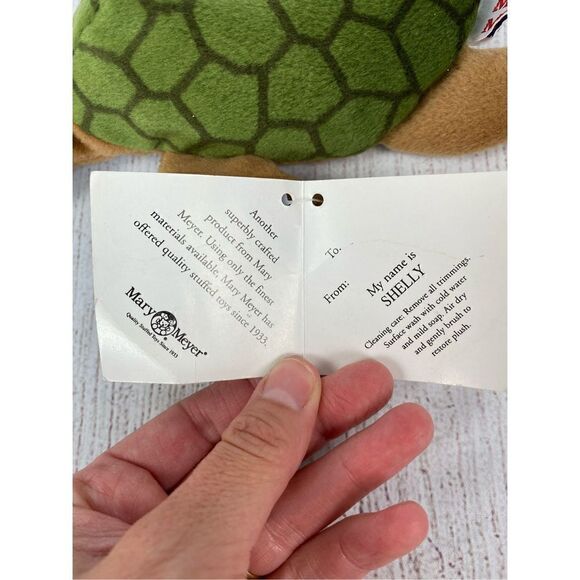 Another
superbly crafted
product from Mary
Meyer. Using only the finest
materials available, Mary Meyer has
offered quality stuffed toys since 1933.
Mary
Meyer®
Quality Stuffed Toys Since 1933
To:
From:
My name is
SHELLY
Cleaning care: Remove all trimmings.
Surface wash with cold water
and mild soap. Air dry
and gently brush to
restore plush.